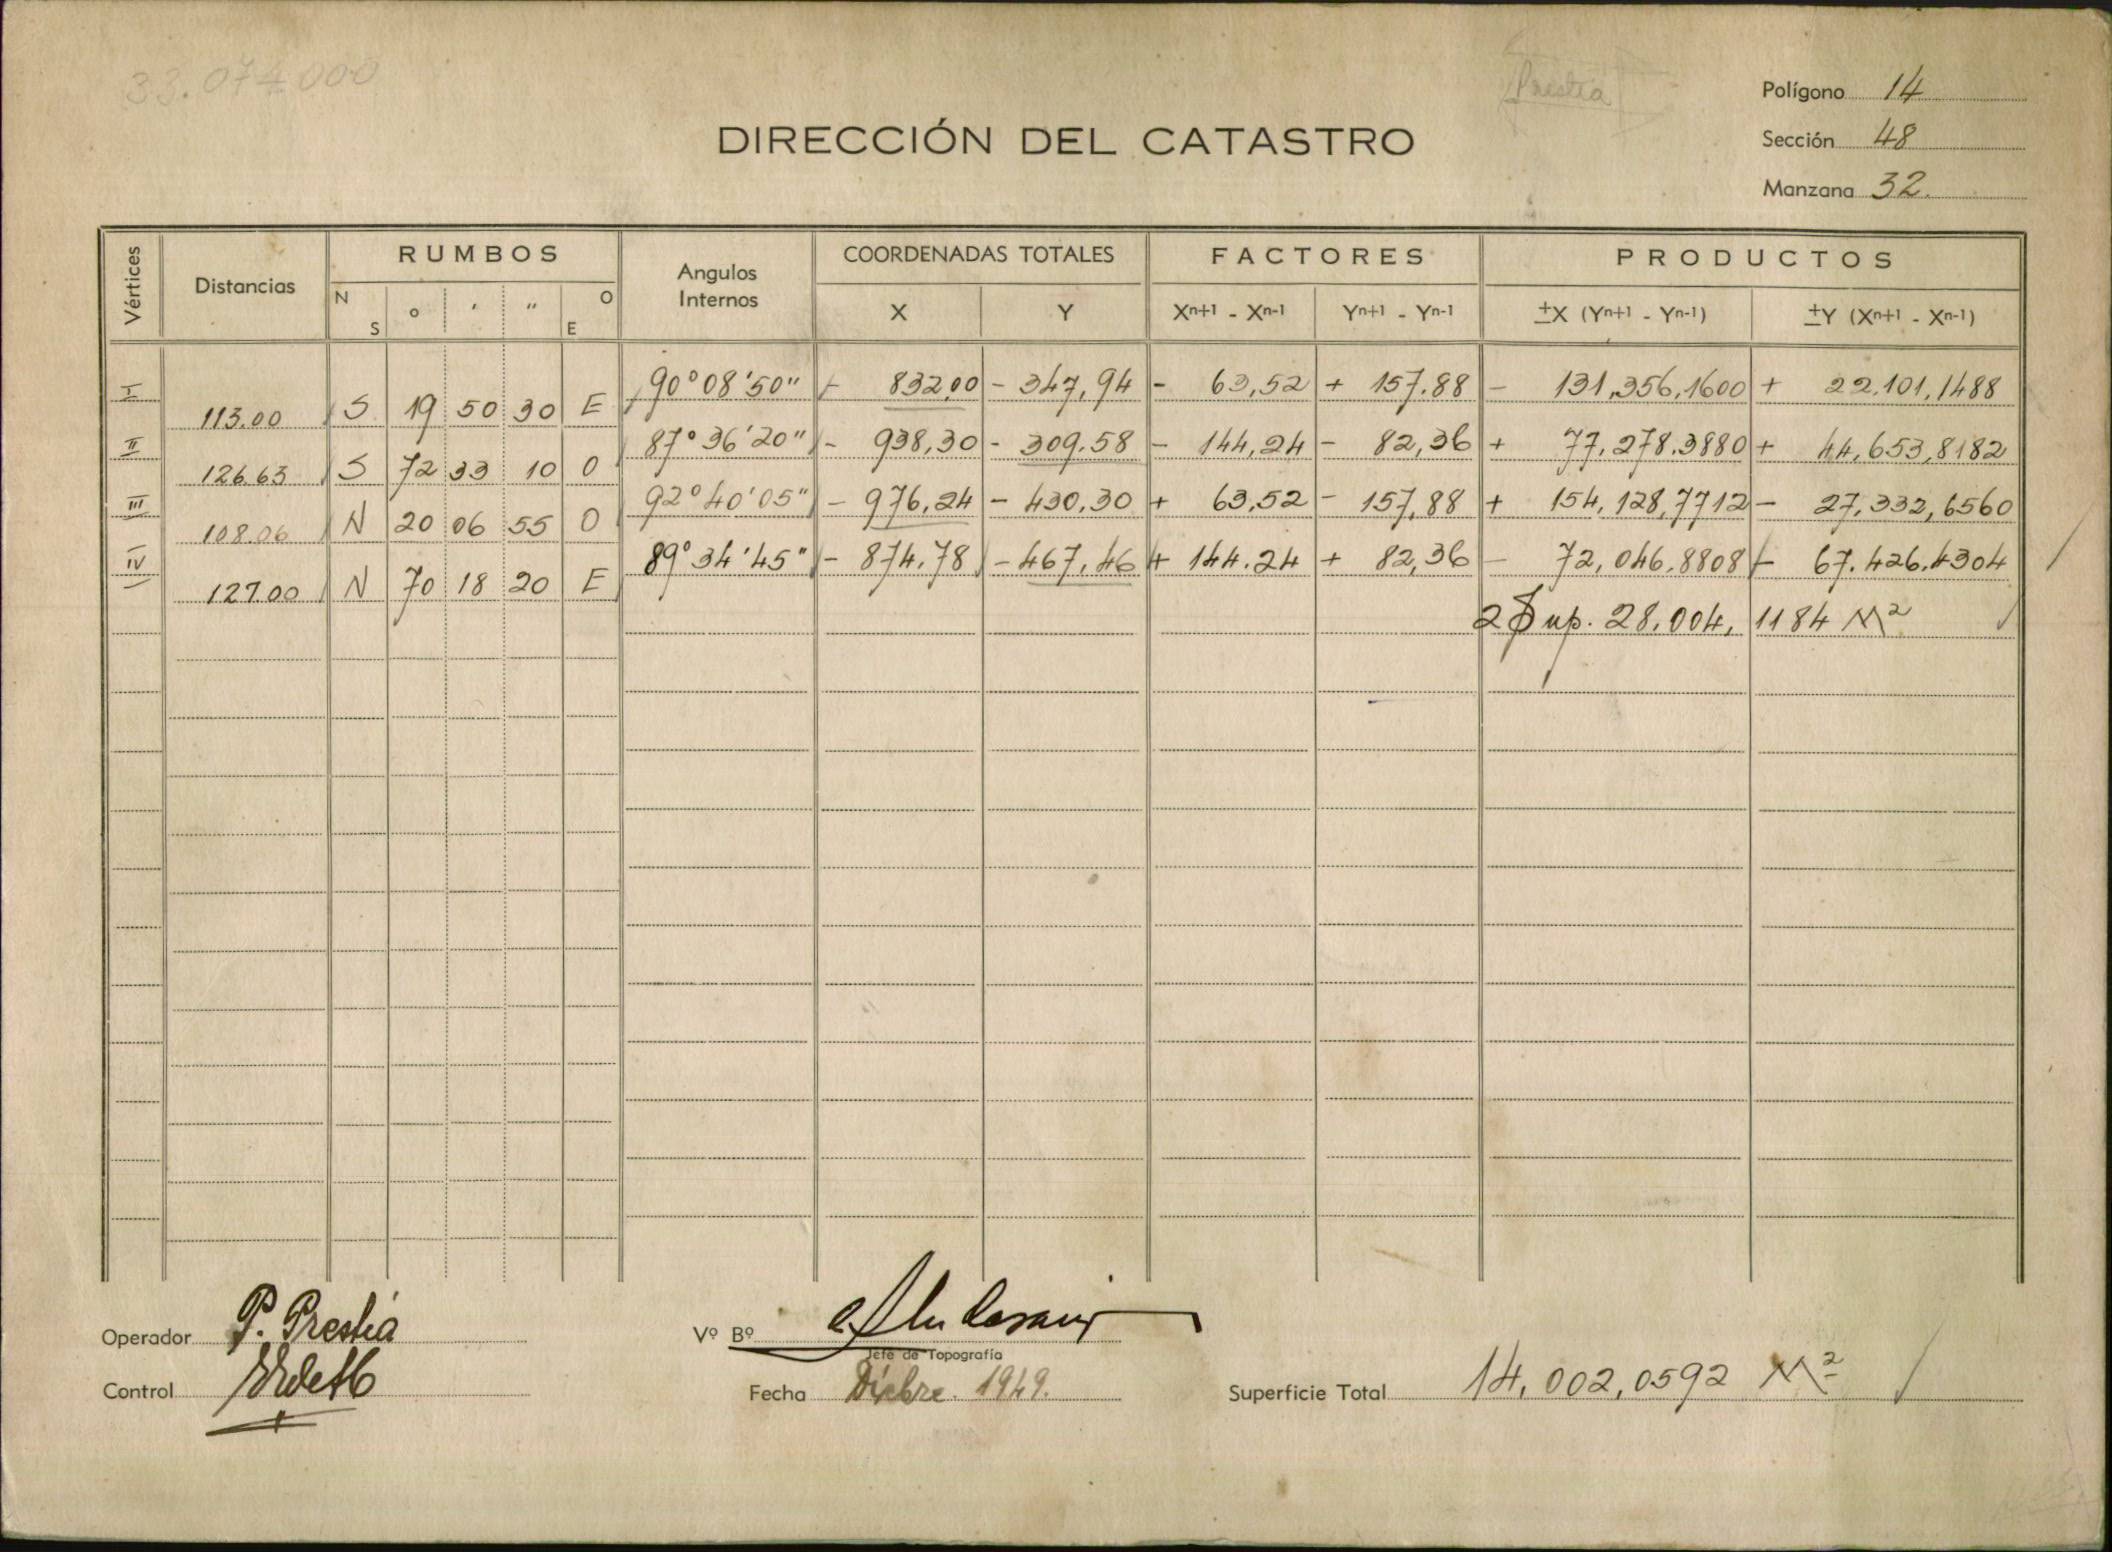 33.074000
Prestia
Polígono 14
DIRECCIÓN DEL CATASTRO
Sección 48
Manzana 32.
Vértices Distancias RUMBOS Angulos Internos COORDENADAS TOTALES FACTORES PRODUCTOS
N S ° ′ ″ O E X Y Xn+1 - Xn-1 Yn+1 - Yn-1 ±X (Yn+1 - Yn-1) ±Y (Xn+1 - Xn-1)
I 90°08'50" - 832,00 - 347,94 - 63,52 + 157.88 - 131,356,1600 + 22.101,1488
113.00 S 19 50 30 E
II 87°36'20" - 938,30 - 309.58 - 144,24 - 82,36 + 77.278.3880 + 44,653,8182
126.63 S 72 33 10 O
III 92°40'05" - 976,24 - 430,30 + 63,52 - 157,88 + 154,128,7712 - 27,332,6560
108.06 N 20 06 55 O
IV 89°34'45" - 874.78 - 467,46 + 144.24 + 82,36 - 72,046.8808 - 67.426.4304
127.00 N 70 18 20 E
2 Sup. 28.004, 1184 M²
Operador P. Prestiá
Vº Bº
Jefe de Topografía
Control
Fecha Dicbre. 1949.
Superficie Total 14,002,0592 M²